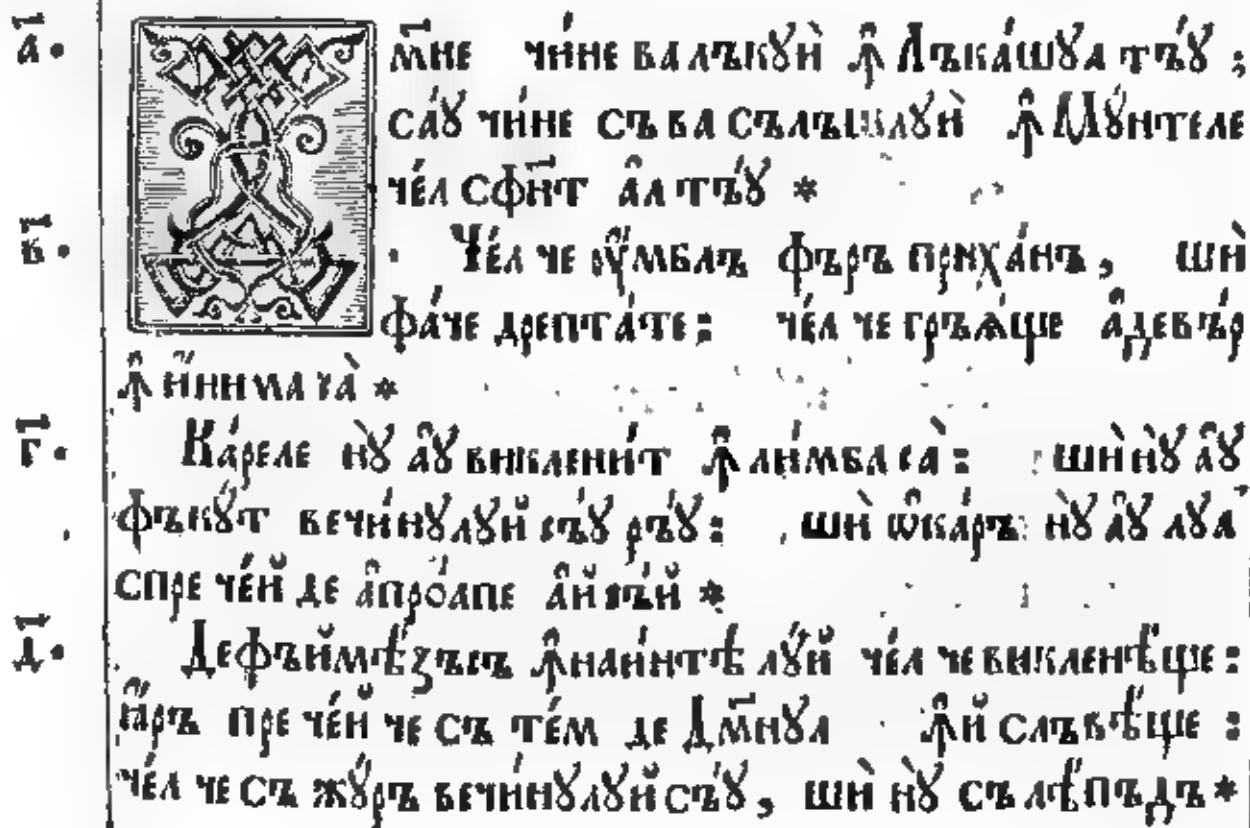 а҃.
Мⷭ҇не чи́не ва лъкꙋѝ ꙟ҆̂ Лъка́шꙋа тъ́ꙋ;
са́ꙋ чи́не съ ва сълъшлꙋѝ ꙟ҆̂ Мꙋ́нтеле
че́л сфн҃т а҆̂л тъ́ꙋ *
в҃.
Че́л че ᲂу҆́мблъ фъръ приха́нъ, шѝ
фа́че дрепта́те: че́л че гръѧ́ще а҆девъ́р
ꙟ҆̂ и҆́нима са̀ *
г҃.
Ка́реле нꙋ̀ а҆̂ꙋ виклени́т ꙟ҆̂ ли́мба са̀: шѝ нꙋ̀ а҆̂ꙋ
фъкꙋ́т вечи́нꙋлꙋй съ́ꙋ ръ́ꙋ: шѝ ѡ҆ка́ръ нꙋ̀ а҆̂ꙋ лꙋа̀
спре че́й де а҆про́апе а҆̂й съ́й *
д҃.
Дефъймѣ́зъсъ ꙟ҆̂наи́нтѣ лꙋ́й че́л че викленѣ́ще:
и҆́ръ пре че́й че съ те́м де Дм҃нꙋл ꙟ҆̂й слъвѣ́ще:
че́л че съ жꙋ́ръ вечи́нꙋлꙋй съ́ꙋ, шѝ нꙋ̀ съ лѣ́пъдъ *